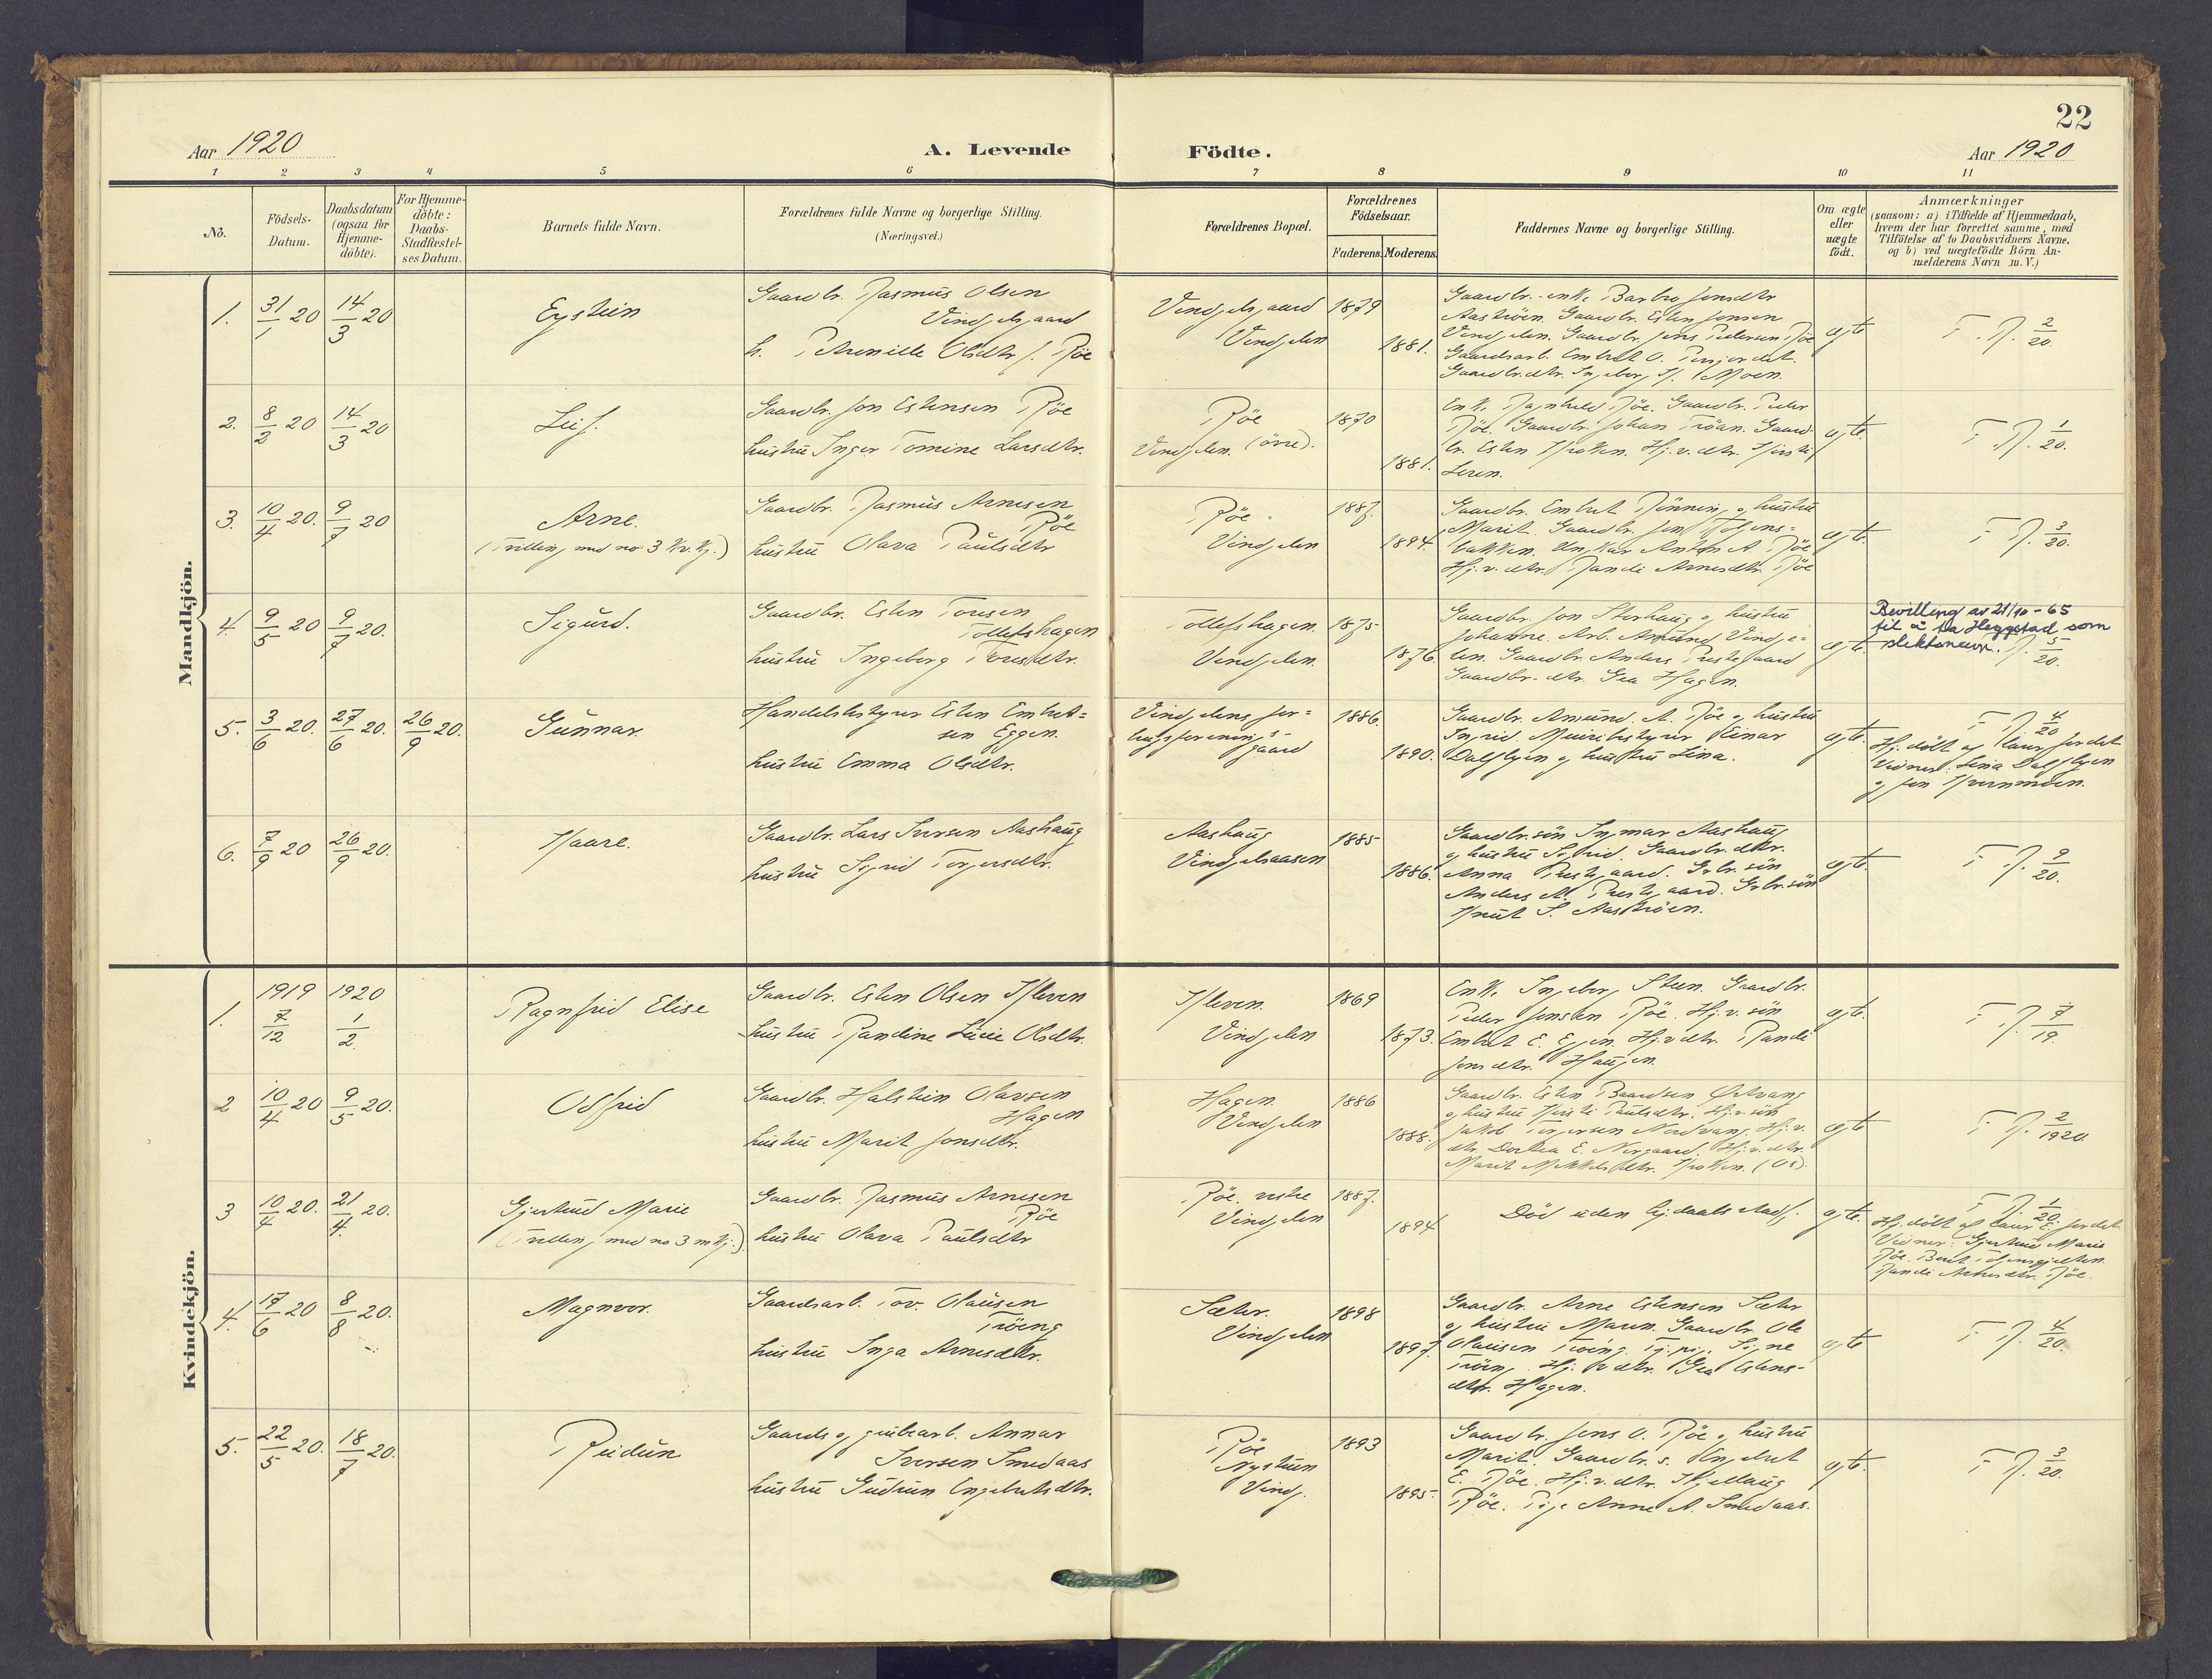 22
Aar 1920
A. Levende Födte.
Aar 1920
1 2 3 4 5 6 7 8 9 10 11
No.
Födsels-Datum.
Daabsdatum (ogsaa for Hjemme-döbte).
For Hjemme-döbte: Daabs-Stadfæstel-ses Datum.
Barnets fulde Navn.
Forældrenes fulde Navne og borgerlige Stilling.
(Næringsvei.)
Forældrenes Bopæl.
Forældrenes Födselsaar.
Faderens. Moderens.
Faddernes Navne og borgerlige Stilling.
Om ægte eller uægte födt.
Anmærkninger
(saasom: a) i Tilfælde af Hjemmedaab,
hvem der har forrettet samme, med
Tilföielse af to Daabsvidners Navne,
og b) ved uægtefödte Börn An-
melderens Navn m. V.)
Mandkjön.
1. 31/1 20 14/3 20
Eystein
Gaardbr. Rasmus Olsen
Vingelsgaard
h. Pernille Olsdtr f. Röe
Vingelsgaard
Vingelen
1879
1881.
Gaardbr.-enke Barbro Jonsdtr
Aaströen. Gaardbr. Esten Jonsen
Vingelen. Gaardbr. Jens Pedersen Röe
Gaardsarb. Embret O.
Gaardbr.dtr. Ingeborg H. Moen.
egte
F. R. 2/20.
2. 8/2 20 14/3 20
Leif.
Gaardbr. Jon Estensen Röe
hustru Inger Tomine Larsdtr.
Röe
Vingelen. (övre).
1870
1881.
Enke Ragnhild Röe. Gaardbr. Peder
Röe. Gaardbr. Johan Tröan. Gaard-
br. Esten Kroken. Hj.v.dtr. Kirsti
Leren.
egte.
F. R. 1/20.
3. 10/4 20. 9/7 20
Arne.
(Tvilling med no 3 kv.kj.)
Gaardbr. Rasmus Arnesen
Röe
hustru Olava Paulsdtr
Röe.
Vingelen
1887.
1894.
Gaardbr. Embret Rönning og hustru
Marit. Gaardbr. Jon
bakken. Ungkar Anton A. Röe
Hj.v.dtr. Randi Arnesdtr. Röe
egte.
F. R. 3/20.
4. 9/5 20 9/7 20.
Sigurd.
Gaardbr. Esten Toresen
Tollefshagen
hustru Ingeborg Toresdtr.
Tollefshagen.
Vingelen.
1875
1876.
Gaardbr. Jon Storhaug og hustru
Johanne. Arb. Amund Vinge-
len. Gaardbr. Anders Prestegaard
Gaardbr.dtr. Gea Hagen.
egte.
Bevilling av 21/10-65
til å ta Heggstad som
slektsnavn. R. 5/20.
5. 3/6 20. 27/6 20. 26/9 20.
Gunnar.
Handelsbestyrer Esten Embret=
sen Eggen.
hustru Emma Olsdtr.
Vingelens for=
brugsforenings-
gaard
1886.
1890.
Gaardbr. Amund A. Röe og hustru
Ingrid. Meieribestyrer Einar
Dalflyen og hustru Lina.
egte.
F. R. 4/20
Hj.döbt af
Vidner: Lina Dalflyen
og Jon Kvernmoen.
6. 7/9 20 26/9 20.
Haare.
Gaardbr. Lars Iversen Aashaug
hustru Sigrid Torgersdtr.
Aashaug
Vingelsaasen
1885
1886.
Gaardbr.sön Ingmar Aashaug
og hustru Sigrid. Gaardbr.dtr.
Anna Prestegaard. Grbr.sön
Anders A. Prestegaard. Grbr.sön
Knut S. Aaströen.
egte.
F. R. 9/20.
Kvindekjön.
1. 1919 7/12 1920 1/2
Ragnfrid Elise
Gaardbr. Esten Olsen Kleven
hustru Randine Lucie Olsdtr.
Kleven.
Vingelen
1869
1873.
Enke Ingeborg Steen. Gaardbr.
Peder Jensen Röe. Hj.v. sön
Embret E. Eggen. Hj.v.dtr. Randi
Jonsdtr. Haugen.
egte.
F. R. 7/19.
2 10/4 20 9/5 20.
Odfrid
Gaardbr. Halstein Olavsen
Hagen
hustru Marit Jonsdtr.
Hagen.
Vingelen
1886
1888.
Gaardbr. Esten Baardsen
og hustru Kirsti Paulsdtr. Hj.v. sön
Jakob Torgersen Nordvang. Hj.v.
dtr. Dorthea E. Norgaard. Hj.v.dtr.
Marit Mikkelsdtr. Kroken. (Os).
egte
F. R. 2/1920.
3 10/4 20. 21/4 20.
Gjertrud Marie
(Tvilling med no 3 m.kj.)
Gaardbr. Rasmus Arnesen
Röe
hustru Olava Paulsdtr
Röe. vestre
Vingelen
1887.
1894
Död uden hj.daabs stadf.
egte.
F. R. 1/20
Hj.döbt af
Vidner: Gjertrud Marie
Röe. Berit
Randi Arnesdtr. Röe.
4. 17/6 20 8/8 20.
Magnvor.
Gaardsarb. Tor. Olausen
Tröeng
hustru Inga Arnesdtr.
Sæter.
Vingelen
1898
1897.
Gaardbr. Arne Estensen Sæter
og hustru Maren. Gaardbr. Ole
Olausen Tröeng. Tj.pi. Signe
Tröeng. Hj.v.dtr. Gea Estens-
dtr. Hagen.
egte
F. R. 4/20.
5. 22/5 20. 18/7 20.
Reidun
Gaards og grubearb. Annar
Iversen Smedaas
hustru Gudrun Engebretsdtr.
Röe
Nystuen
Ving.
1893
1895.
Gaardbr. Jens O. Röe og hustru
Marit. Gaardbr. s. Engebret
E. Röe. Hj.v.dtr. Kjellaug
Röe. Pige Anne A. Smedaas.
egte.
F. R. 3/20.